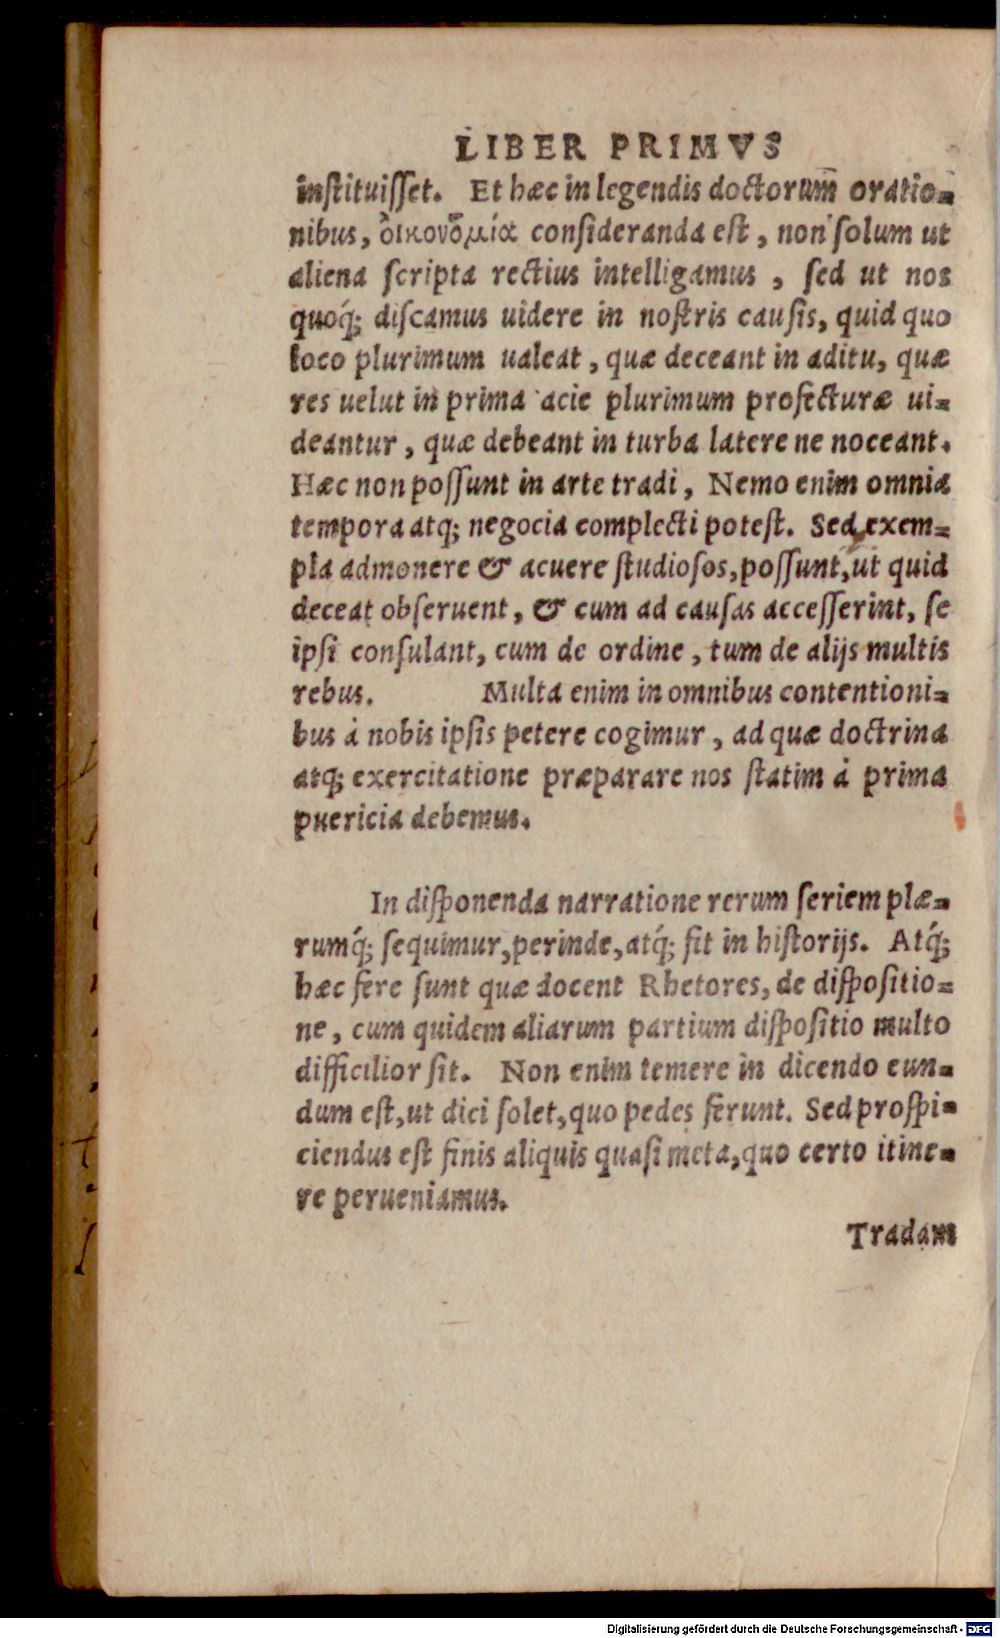 LIBER PRIMVS
inſtituiſſet. Et hæc in legendis doctorum oratio=
nibus, ὀικονομία conſideranda eſt, non ſolum ut
aliena ſcripta rectius intelligamus, ſed ut nos
quoq́; diſcamus uidere in noſtris cauſis, quid quo
loco plurimum ualeat, quæ deceant in aditu, quæ
res uelut in prima acie plurimum profecturæ ui=
deantur, quæ debeant in turba latere ne noceant.
Hæc non poſſunt in arte tradi, Nemo enim omnia
tempora atq; negocia complecti poteſt. Sed exem=
pla admonere & acuere ſtudioſos, poſſunt, ut quid
deceat obſeruent, & cum ad cauſas acceſſerint, ſe
ipſi conſulant, cum de ordine, tum de alijs multis
rebus. Multa enim in omnibus contentioni=
bus à nobis ipſis petere cogimur, ad quæ doctrina
atq; exercitatione præparare nos ſtatim à prima
puericia debemus.
In diſponenda narratione rerum ſeriem plæ=
rumq́; ſequimur, perinde, atq́; fit in hiſtorijs. Atq́;
hæc fere ſunt quæ docent Rhetores, de diſpoſitio=
ne, cum quidem aliarum partium diſpoſitio multo
difficilior ſit. Non enim temere in dicendo eun=
dum eſt, ut dici ſolet, quo pedes ferunt. Sed proſpi=
ciendus eſt finis aliquis quaſi meta, quo certo itine=
re perueniamus.
Tradam
Digitalisierung gefördert durch die Deutsche Forschungsgemeinschaft - DFG